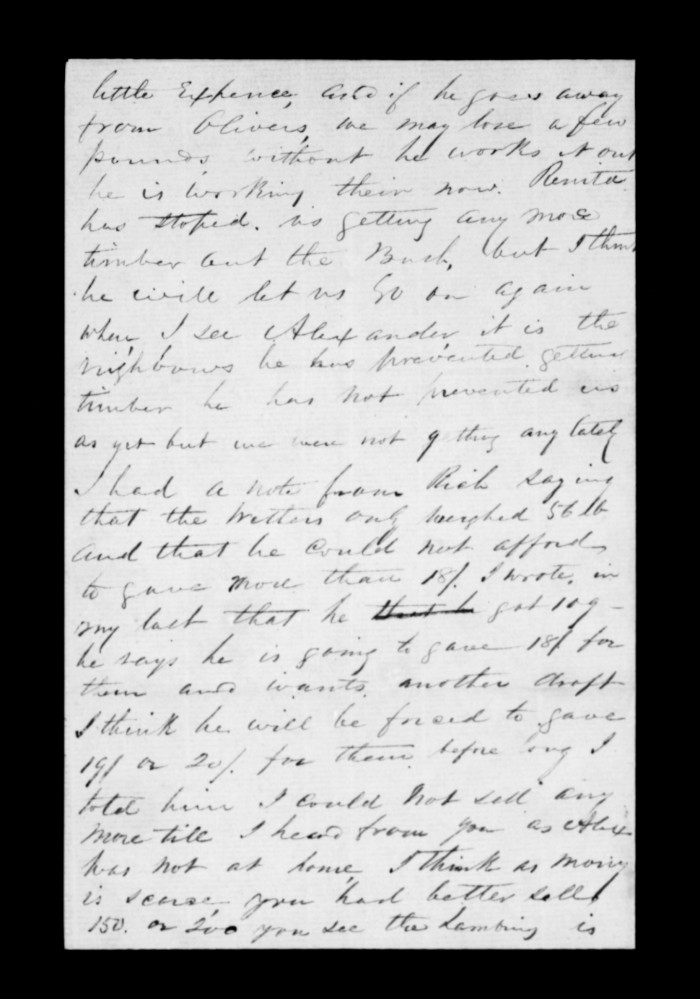 little Expence, and if he goes away
from Olivers, we may lose a few
pounds without he works it out
he is working their now. Renita
has stoped. us getting any more
timber out the Bush, but I think
he will let us Go on again
when I see Alexander it is the
nighbours he has prevented getting
timber he has not prevented us
as yet but we were not getting any lately
I had a note from Rich saying
that the Wethers only weighed 56 lb
and that he could not afford
to gave more than 18/. I wrote, in
my last that he got 109 -
he says he is going to gave 18/ for
them and wants another draft
I think he will be forsed to gave
19/ or 20/. for them before long I
told him I could not sell any
more till I heard from you as Alex
was not at home, I think as mony
is scarse, you had better sell
150. or 200 you see the Lambing is